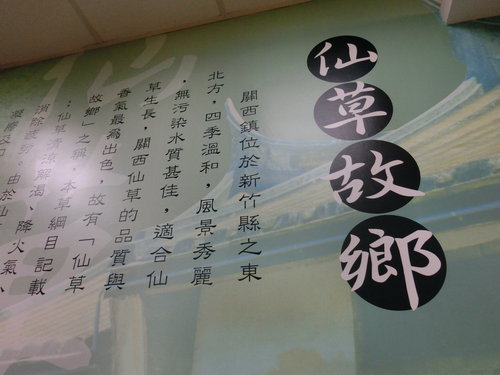 仙草故鄉
關西鎮位於新竹縣之東
北方，四季溫和，風景秀麗
，無污染水質甚佳，適合仙
草生長，關西仙草的品質與
香氣最為出色，故有「仙草
故鄉」之稱。本草綱目記載
：仙草清涼解渴、降火氣、